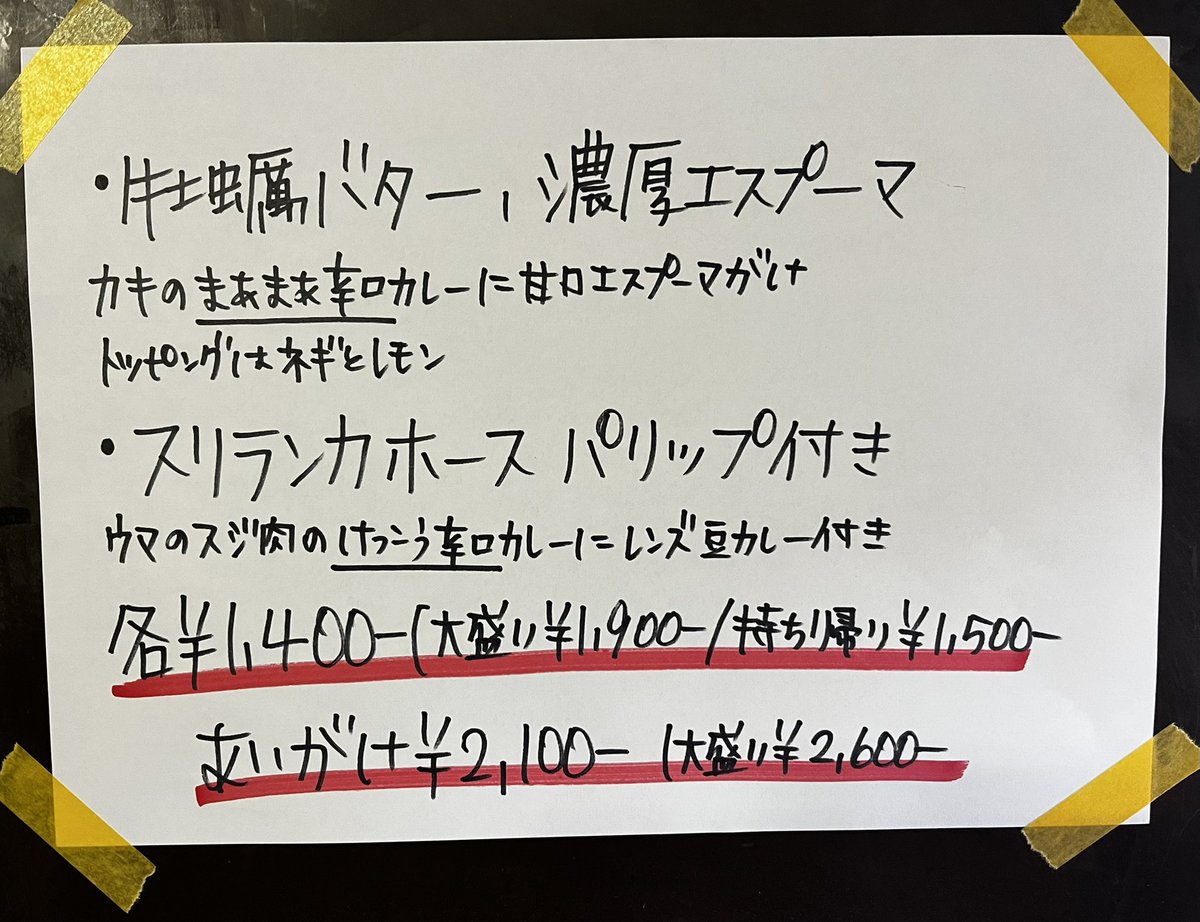 ・牡蠣バター、濃厚エスプーマ
カキのまあまあ辛口カレーに甘口エスプーマがけ
トッピングはネギとレモン
・スリランカホース パリップ付き
ウマのスジ肉のけっこう辛口カレーにレンズ豆カレー付き
各¥1,400-(大盛り¥1,900-/持ち帰り¥1,500-
あいがけ¥2,100- (大盛り¥2,600-